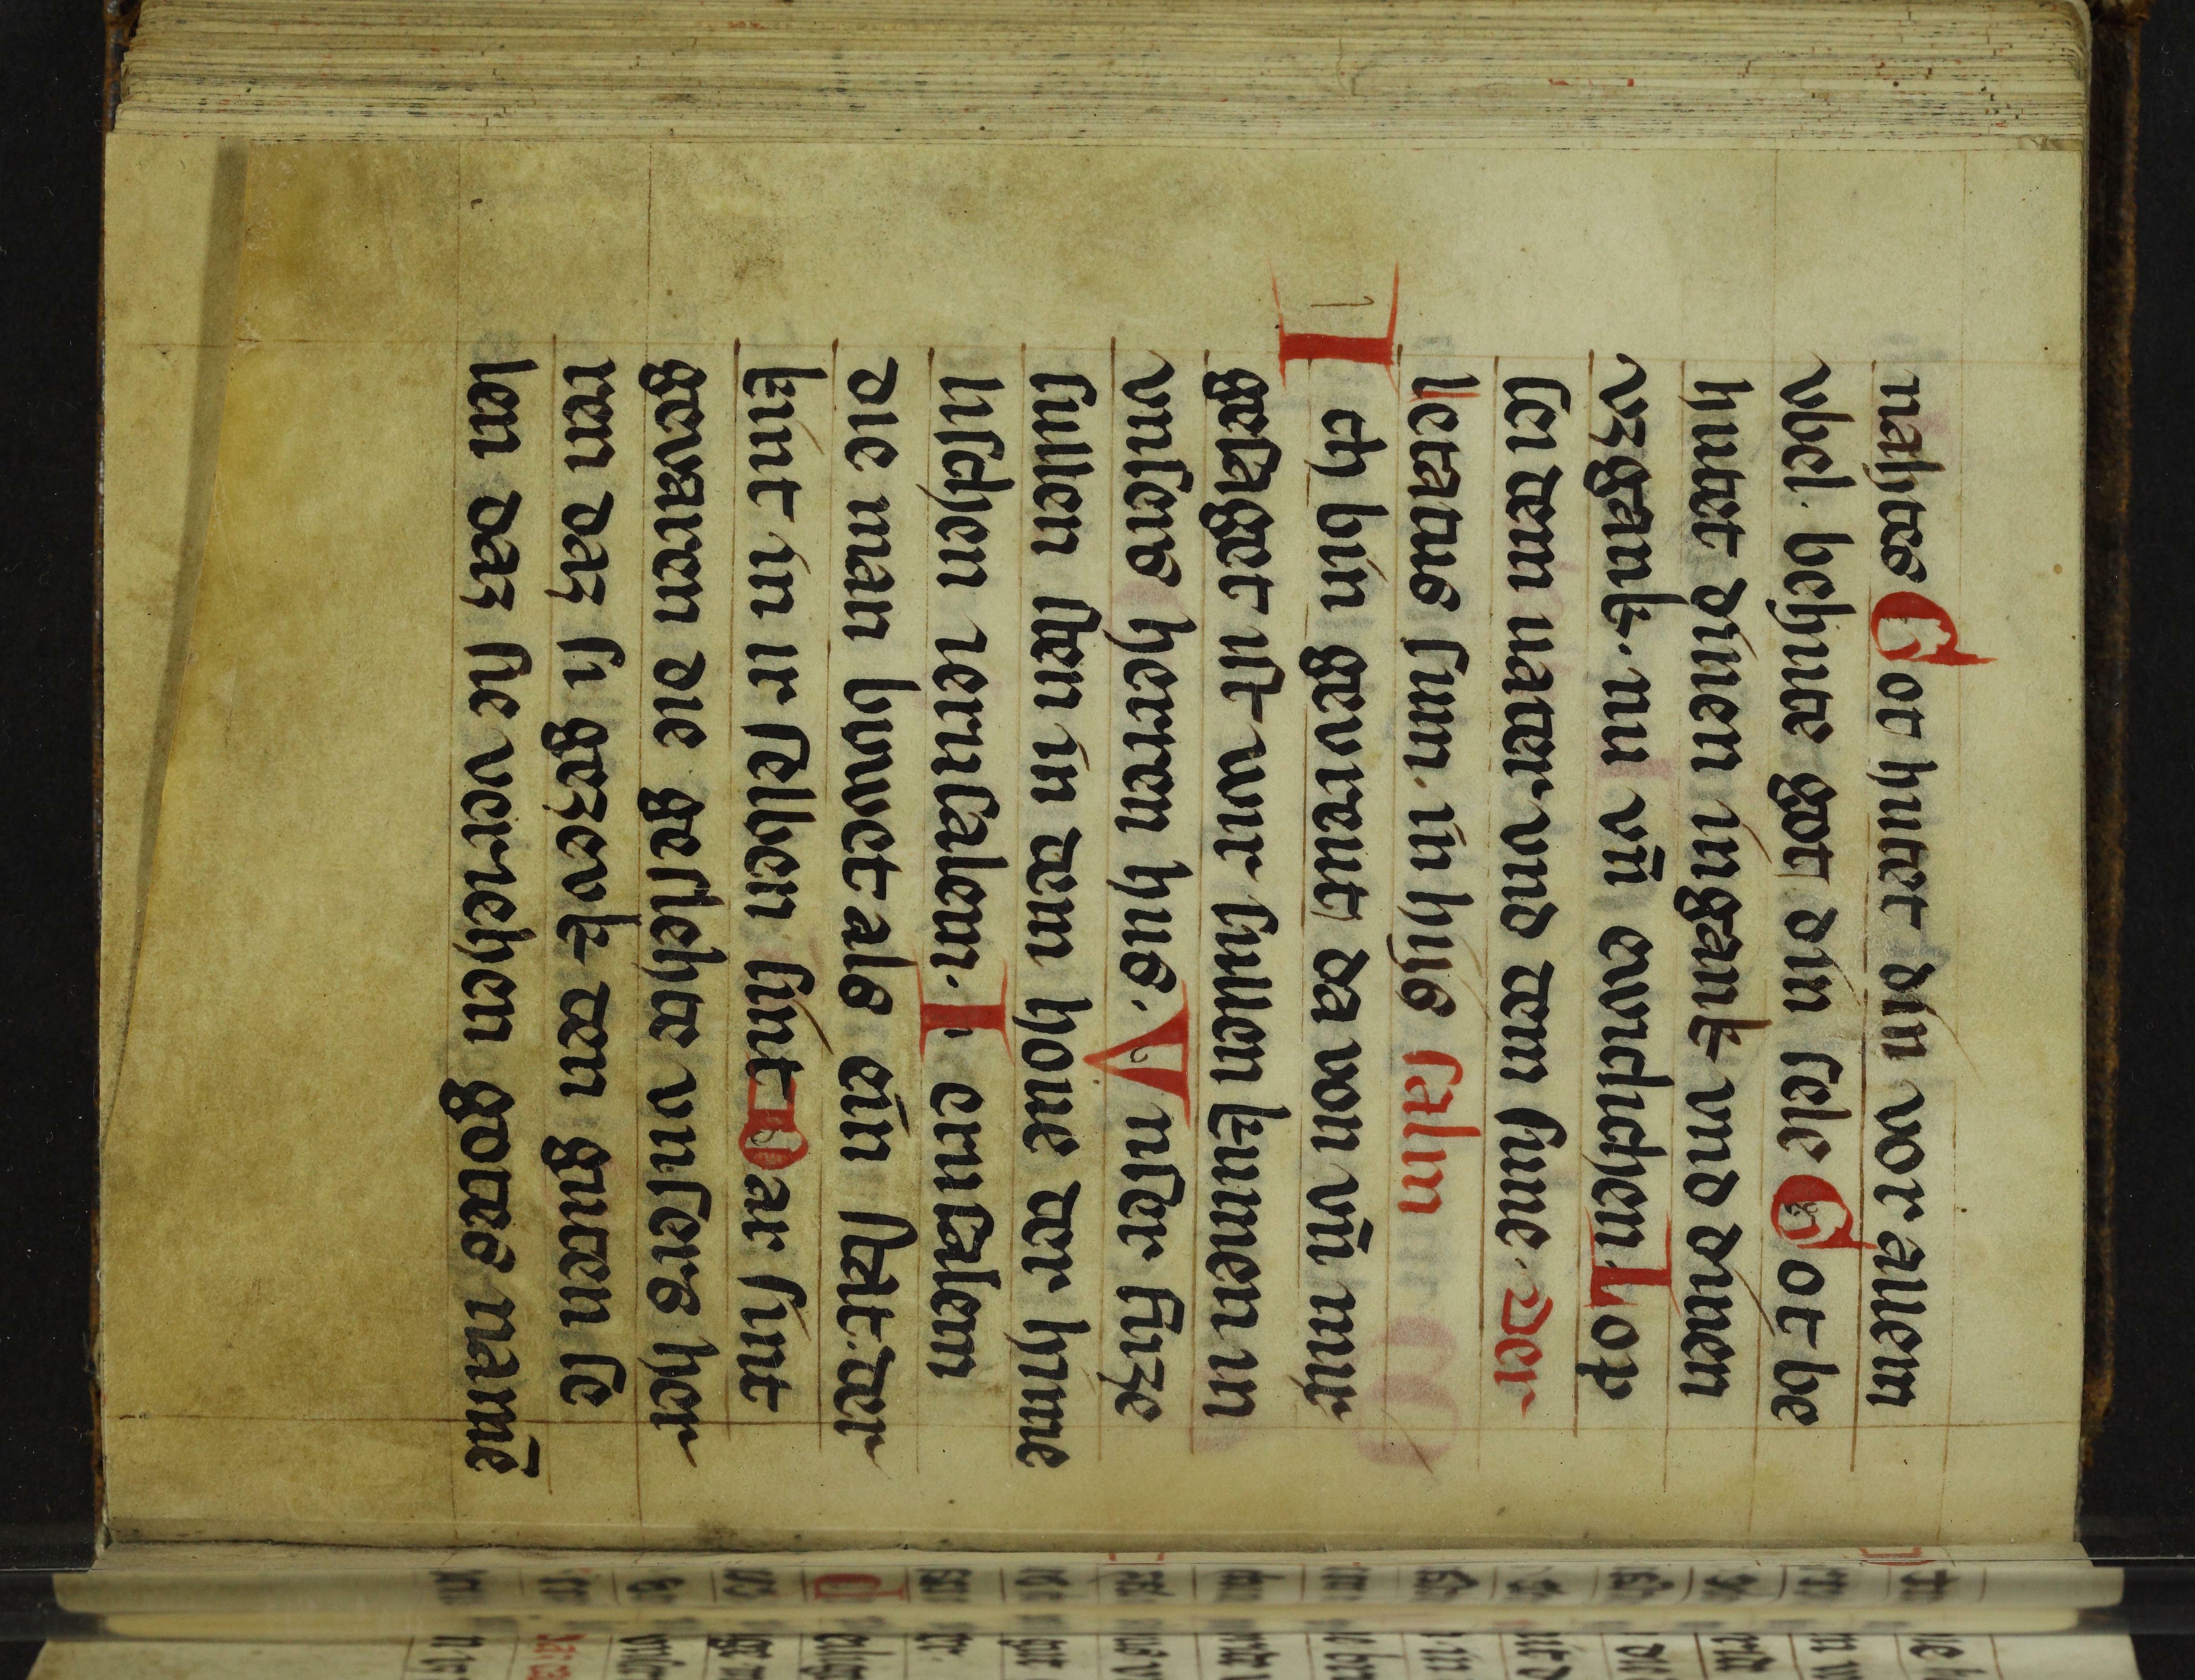 nahtes Got hutet din vor allem
vbel. behute got din sele Got be
hutet dinen ingank vnd dinen
vzgank. nu vñ ewichlichen Lop
sei dem uater vnd dem sune. Der
letatus sum. in hijs salm
Ich bin gevreut da von vñ mir
gesaget ist wir sullen kumen in
vnsers herren hus. Vnser fuze
sullen sten in dem houe der hime
lischen ierusalem. Ierusalem
die man buwet als ein stat. der
kint in ir selben sint Dar sint
gevaren die geslehte vnsers her
ren daz si gezevk den guten se
len daz sie veriehen gotes namē